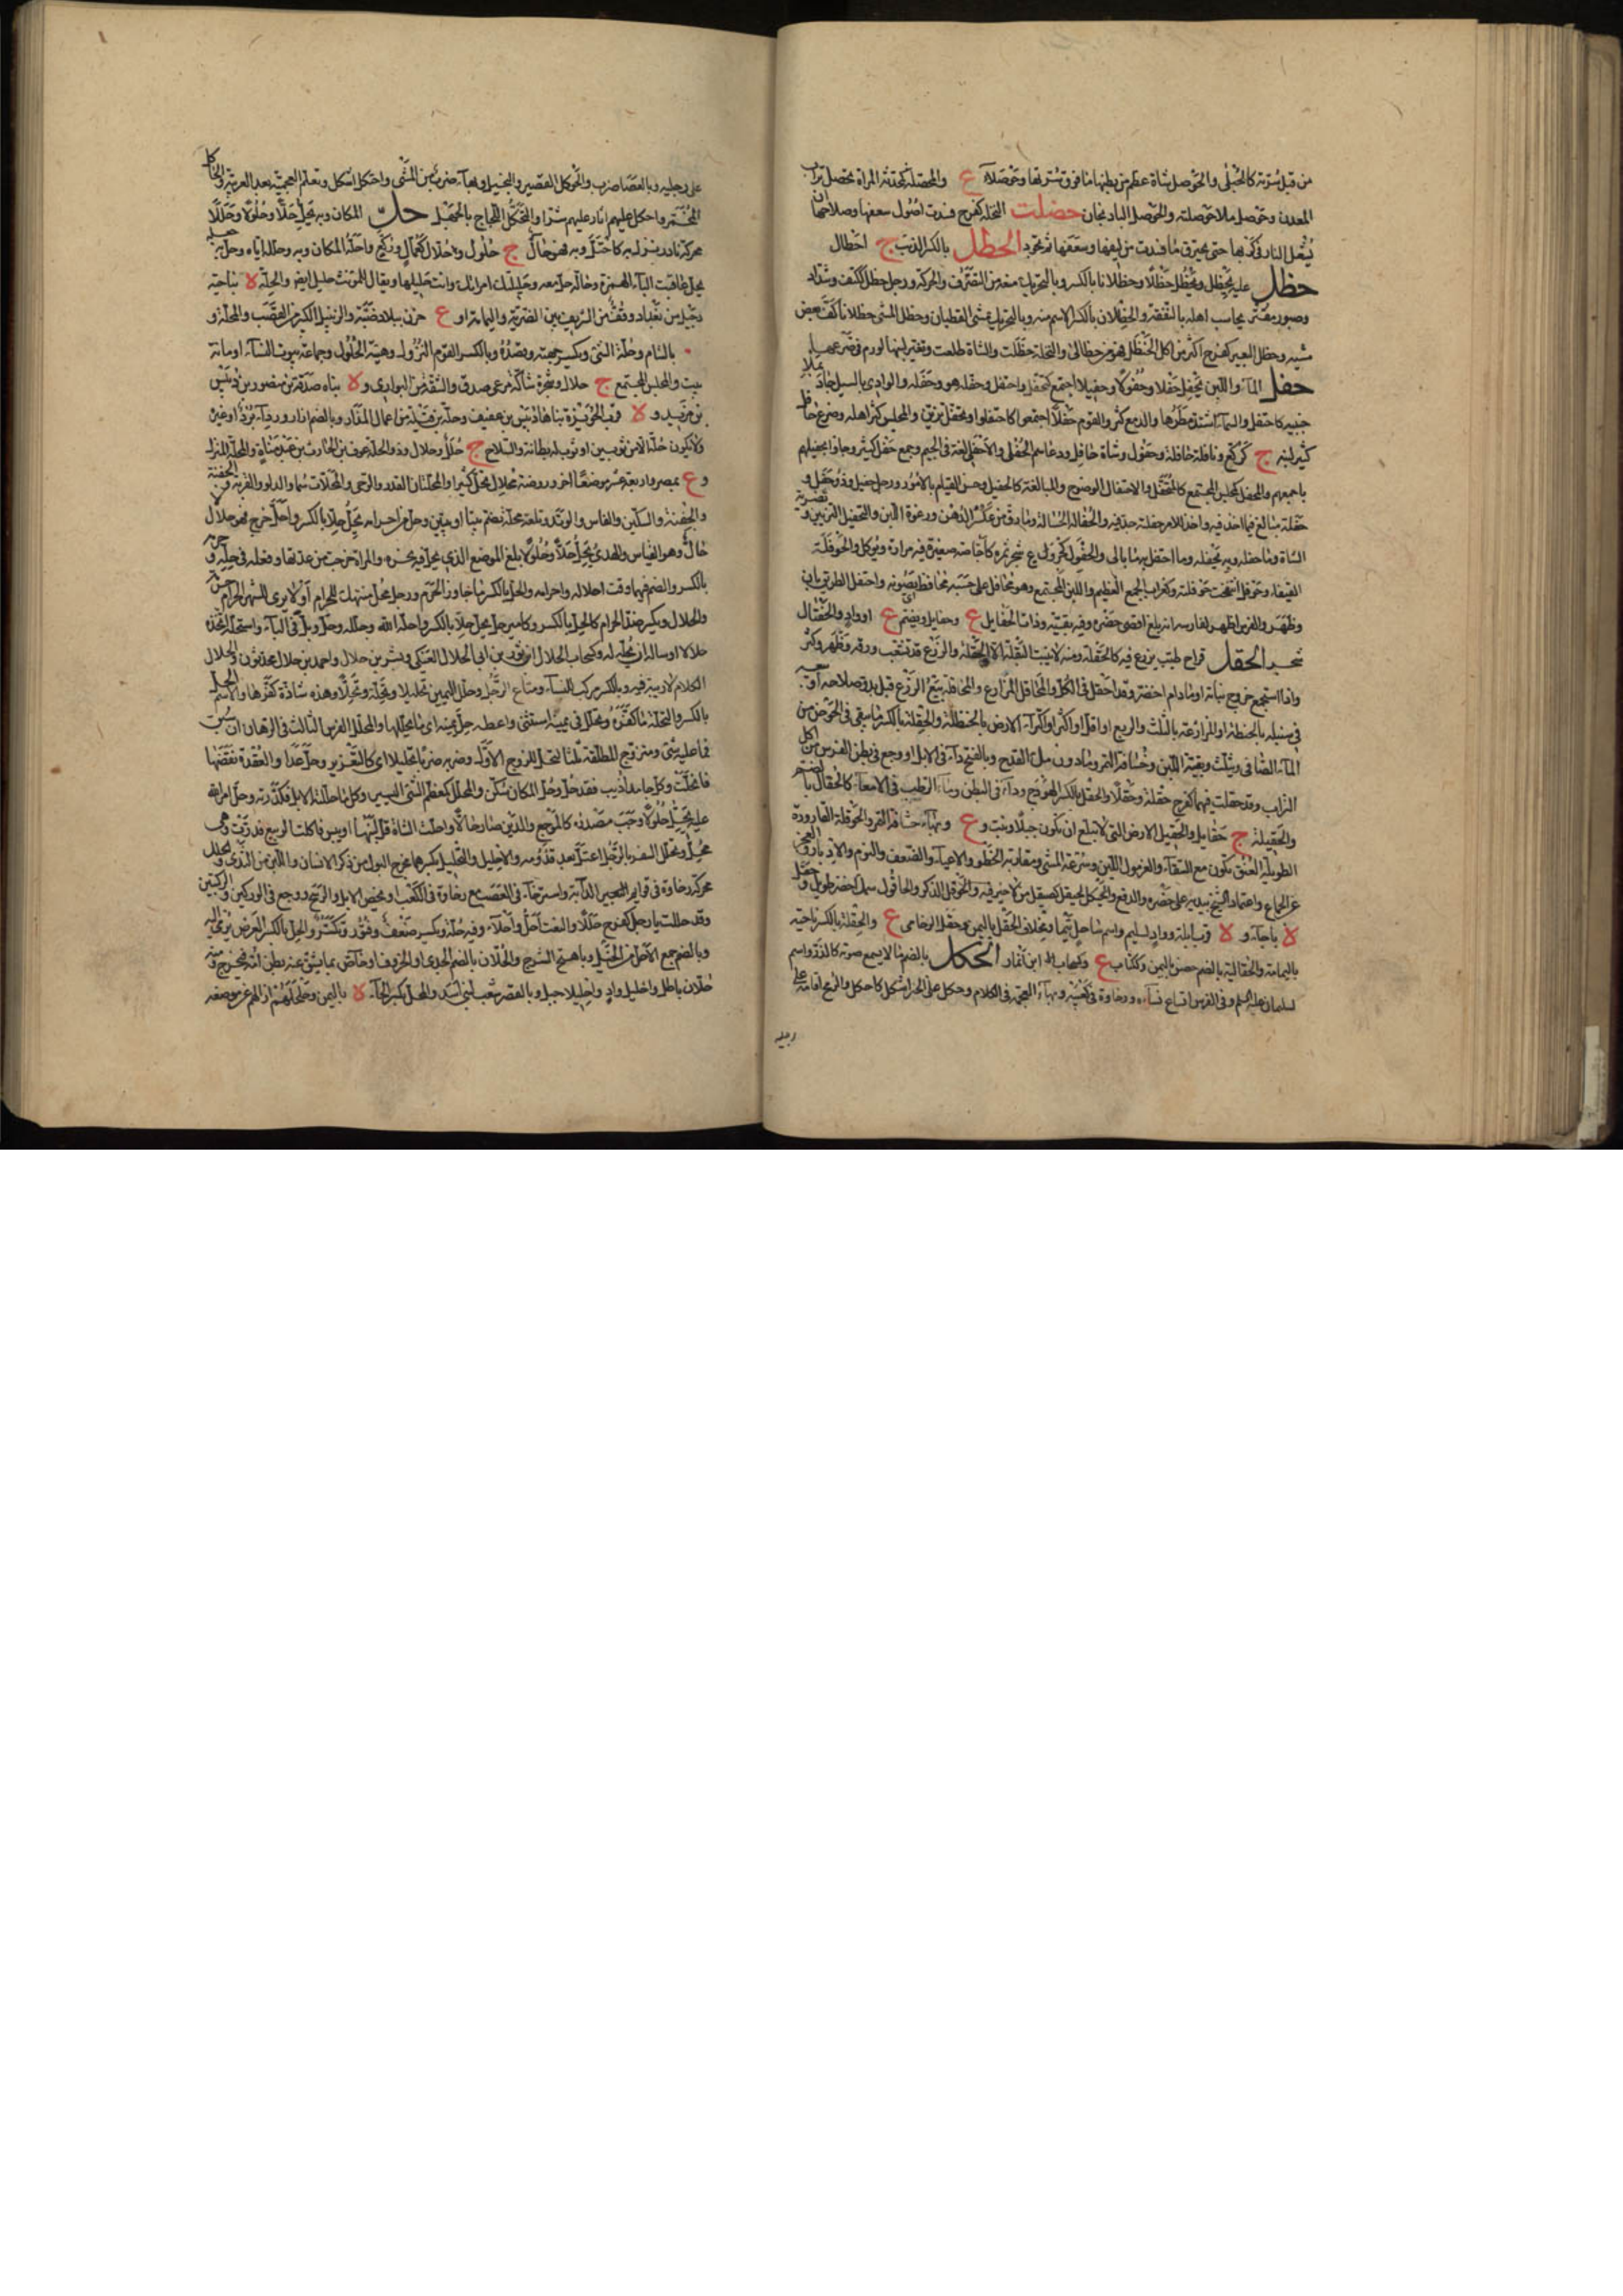 من قبل سرته كالحبلى والحوصل شاة عظم من بطنها ما فوق سرتها وحوصلاء ع والمحصلة كمحدثة المرأة تحصل تراب
المعدن وحوصل ملأ حوصلته والحوصل الباذنجان حضلت النخلة كفرح فسدت اصول سعفها وصلاحها ان
تشعل النار فى كربها حتى يحترق ما فسدت من ليفها وسعفها ثم تجود الحظل بالكسر الذئب ج احظال
حظل عليه يحظل ويحظل حظلا وحظلانا بالكسر وبالتحريك منعه من التصرف والحركة ورجل حظل ككتف وشداد
وصبور مقتر يحاسب اهله بالنفقة والحظلان بالكسر الاسم منه وبالتحريك مشى الغضبان وحظل المشى حظلانا كف بعض
مشيه وحظل البعير كفرح اكثر من اكل الحنظل فهو من حظالى والنخلة حظلت والشاة ظلعت وتغير لبنها لورم فى ضرعها
حفل الماء واللبن يحفل حفلا وحفولا وحفيلا اجتمع كتحفل واحتفل وحفله هو وحفله والوادى بالسيل جاء بملء
جنبيه كاحتفل والسماء اشتد مطرها والدمع كثر والقوم حفلا اجتمعوا كاحتفلوا وتحفل تزين والمجلس كثر اهله وضرع حافل
كثير لبنه ج كركع وناقة حافلة وحفول وشاة حافل ودعاهم الحفلى والاحفلى لغة فى الجيم وجمع حفل كثير وجاؤا بحفيلهم
باجمعهم والمحفل كمجلس المجتمع كالمحتفل والاحتفال الوضوح والمبالغة كالحفيل وحسن القيام بالامور ورجل حفيل وذو حفل و
حفلة مبالغ فيما اخذ فيه واخذ للامر حفلته جد فيه والحفالة الحثالة وما رق من عكر الدهن ورغوة اللبن والتحفيل التزيين وتصرية
الشاة وما حفله وبه يحفله وما احتفل به ما بالى والحفول كجرول ع شجر ثمره كاجاصة صغيرة فيه مرارة ويؤكل والحوفلة
القنفاء وحوفل انتفخت حوفلته وكغراب الجمع العظيم واللبن المجتمع وهو محافظ على حسبه محافل يصونه واحتفل الطريق بان
وظهر والفرس اظهر لفارسه انه بلغ اقصى حضره وفيه بقية وذات الحفايل ع وحفايل ويضم ع او واد والحفال
شجر الحقل قراح طيب يزرع فيه كالحقلة ومنه لا ينبت البقلة الا الحقلة والزرع قد تشعب ورقه وظهر وكثر
واذا استجمع خروج نباته او ما دام اخضر وقد احقل فى الكل والمحاقل المزارع والمحاقلة بيع الزرع قبل بدو صلاحه او بيعه
فى سنبله بالحنطة او المزارعة بالثلث والربع او اقل او اكثر او اكتراء الارض بالحنطة والحقلة بالكسر ما يبقى فى الحوض من
الماء الصافى ويثلث وبقية اللبن وحشافة التمر وما دون ملء القدح وبالفتح داء فى الابل او وجع فى بطن الفرس من اكل
التراب وقد حقلت فيهما كفرح حقلة وحقلا والحقل بالكسر الهودج وداء فى البطن وماء الرطب فى الامعاء كالحقال بالضم
والحقيلة ج حقايل والحقيل الارض التى لا تبلغ ان تكون جبلا ونبت و ع وبهاء حشافة التمر والحوقلة القارورة
الطويلة العنق تكون مع السقاء والغرمول اللين وسرعة المشى ومقاربة الخطو والاعياء والضعف والنوم والادبار والعجز
عن الجماع واعتماد الشيخ بيديه على خصره والدفع والحيقل كصيقل من لا خير فيه والحوقل الذكر والحاقول سمك اخضر طويل وحقل
لا باجاء و لا قرب ايلة وواد لسليم واسم ساحل تيماء ومخلاف الحقل باليمن وحقل الرخامى ع والحقلة بالكسر ناحية
باليمامة والحقالية بالضم حصن باليمن وككتاب ع وكسحاب ابن انمار الحكل بالضم ما لا يسمع صوته كالذر واسم
لسليمان عليه السلم وفى الفرس اتساع نساءه ورخاوة فى كعبيه وبهاء العجمة فى الكلام وحكل على الخبر اشكل كاحكل والرمح اقامه على
رجليه
على رجليه وبالعصا ضرب والحوكل القصير والبخيل وبهاء ضرب من المشى واحتكل اشكل وتعلم العجمية بعد العربية والحاكل
المخمن واحكل عليهم اثار عليهم شرا والتحكل اللجاج بالجهل حل المكان وبه يحل حلا وحلولا وحللا
محركة نادر نزل به كاحتله وبه فهو حال ج حلول وحلال كعمال وركع واحله المكان وبه وحلله اياه وحل به جعله
يحل عاقبت الباء الهمزة وحاله حل معه وحليلتك امراتك وانت حليلها ويقال للمونث حليل ايضا والحلة لا بناحية
دجيل من بغداد وقف من الشريف بين الضرية واليمامة او ع حزن ببلاد ضبة والزنبيل الكبير من القصب والمحلة و
بالشام وحلة الشئ ويكسر جهته وقصده وبالكسر القوم النزول وهيئة الحلول وجماعة بيوت الناس او مائة
بيت والمجلس والمجتمع ج حلال وشجرة شاكة مرعى صدق والشقة من البوارى و لا بناه صدقة بن منصور بن دبيس
بن مزيد و لا قرب الحويزة بناها دبيس بن عفيف وحلة بن قيلة من اعمال المذار وبالضم ازار ورداء برد او غيره
ولا تكون حلة الا من ثوبين او ثوب له بطانة والسلاح ج حلل وحلال وذو الحلة عوف بن الحارث بن عبد مناة والمحلة المنزل
و ع بمصر واربعة عشر موضعا اخر وروضة محلال تحل كثيرا والمحلتان القدر والرحى والمحلات هما والدلو والقربة والجفنة
والسكين والفاس والزند وتلعة محلة تضم بيتا او بيتين وحل من احرامه يحل حلا بالكسر واحل خرج فهو حلال لا
حال وهو القياس والهدى يحل حلة وحلولا بلغ الموضع الذى يحل فيه نحره والمراة خرجت من عدتها وفعله فى حله وحرمه
بالكسر والضم فيهما وقت احلاله واحرامه والحل بالكسر ما جاوز الحرم ورجل محل منتهك للحرام او لا يرى للشهر الحرام حرمة
والحلال ويكسر ضد الحرام كالحل بالكسر وكامير حل يحل حلا بالكسر واحله الله وحلله وحل وبل فى الباء واستحله اتخذه
حلالا او ساله ان يحله له وكسحاب الحلال ابن ثور بن ابى الحلال العتكى وبشر بن حلال واحمد بن حلال محدثون والحلال
الكلام لا ريبة فيه وبالكسر مركب للنساء ومتاع الرحل وحلل اليمين تحليلا وتحلة وتحلا وهذه شاذة كفرها والاسم الحل
بالكسر والتحلة ما كفر به وتحلل فى يمينه استثنى واعطه حل يمينه اى ما يحللها والمحلل الفرس الثالث فى الرهان ان سبق
فما عليه شئ ومتزوج المطلقة ثلثا لتحل للزوج الاول وضربه ضربا تحليلا اى كالتعزير وحل عدا والعقدة نقضها
فانحلت وكل جامد اذيب فقد حل وحل المكان سكن والمحلل كمعظم الشئ اليسير وكل ما حللته الابل فكدرته وحل امر الله
عليه يحل حلولا وجب مصدره كالمرجع والدين صار حالا واحلت الشاة قل لبنها او يبس فاكلت الربيع فدرت وهى
محل وتحلل السفر بالرجل اعتل بعد قدومه والاحليل والتحليل بكسرهما مخرج البول من ذكر الانسان واللبن من الثدى والحلل
محركة رخاوة فى قوايم البعير الدابة واسترخاء فى العصب مع رخاوة فى الكعب او يخص الابل والرسح ووجع فى الوركين والركبتين
وقد حللت يا رجل كفرح حللا والنعت احل وحلاء وفيه حلة ويكسر ضعف وفتور وتكسر والحل بالكسر الغرض يرمى اليه
وبالضم جمع الاحل من الخيل وباهتح الشيرج والحلان بالضم الجدى او الخروف او خاص بما يشق عنه بطن امه فيخرج ودمه
حلان باطل واحليل واد واحليلا جبل وبالقصر شعب لبنى اسد والمحل بكسر الحاء لا باليمن وحلحلهم ازالهم عن موضعه